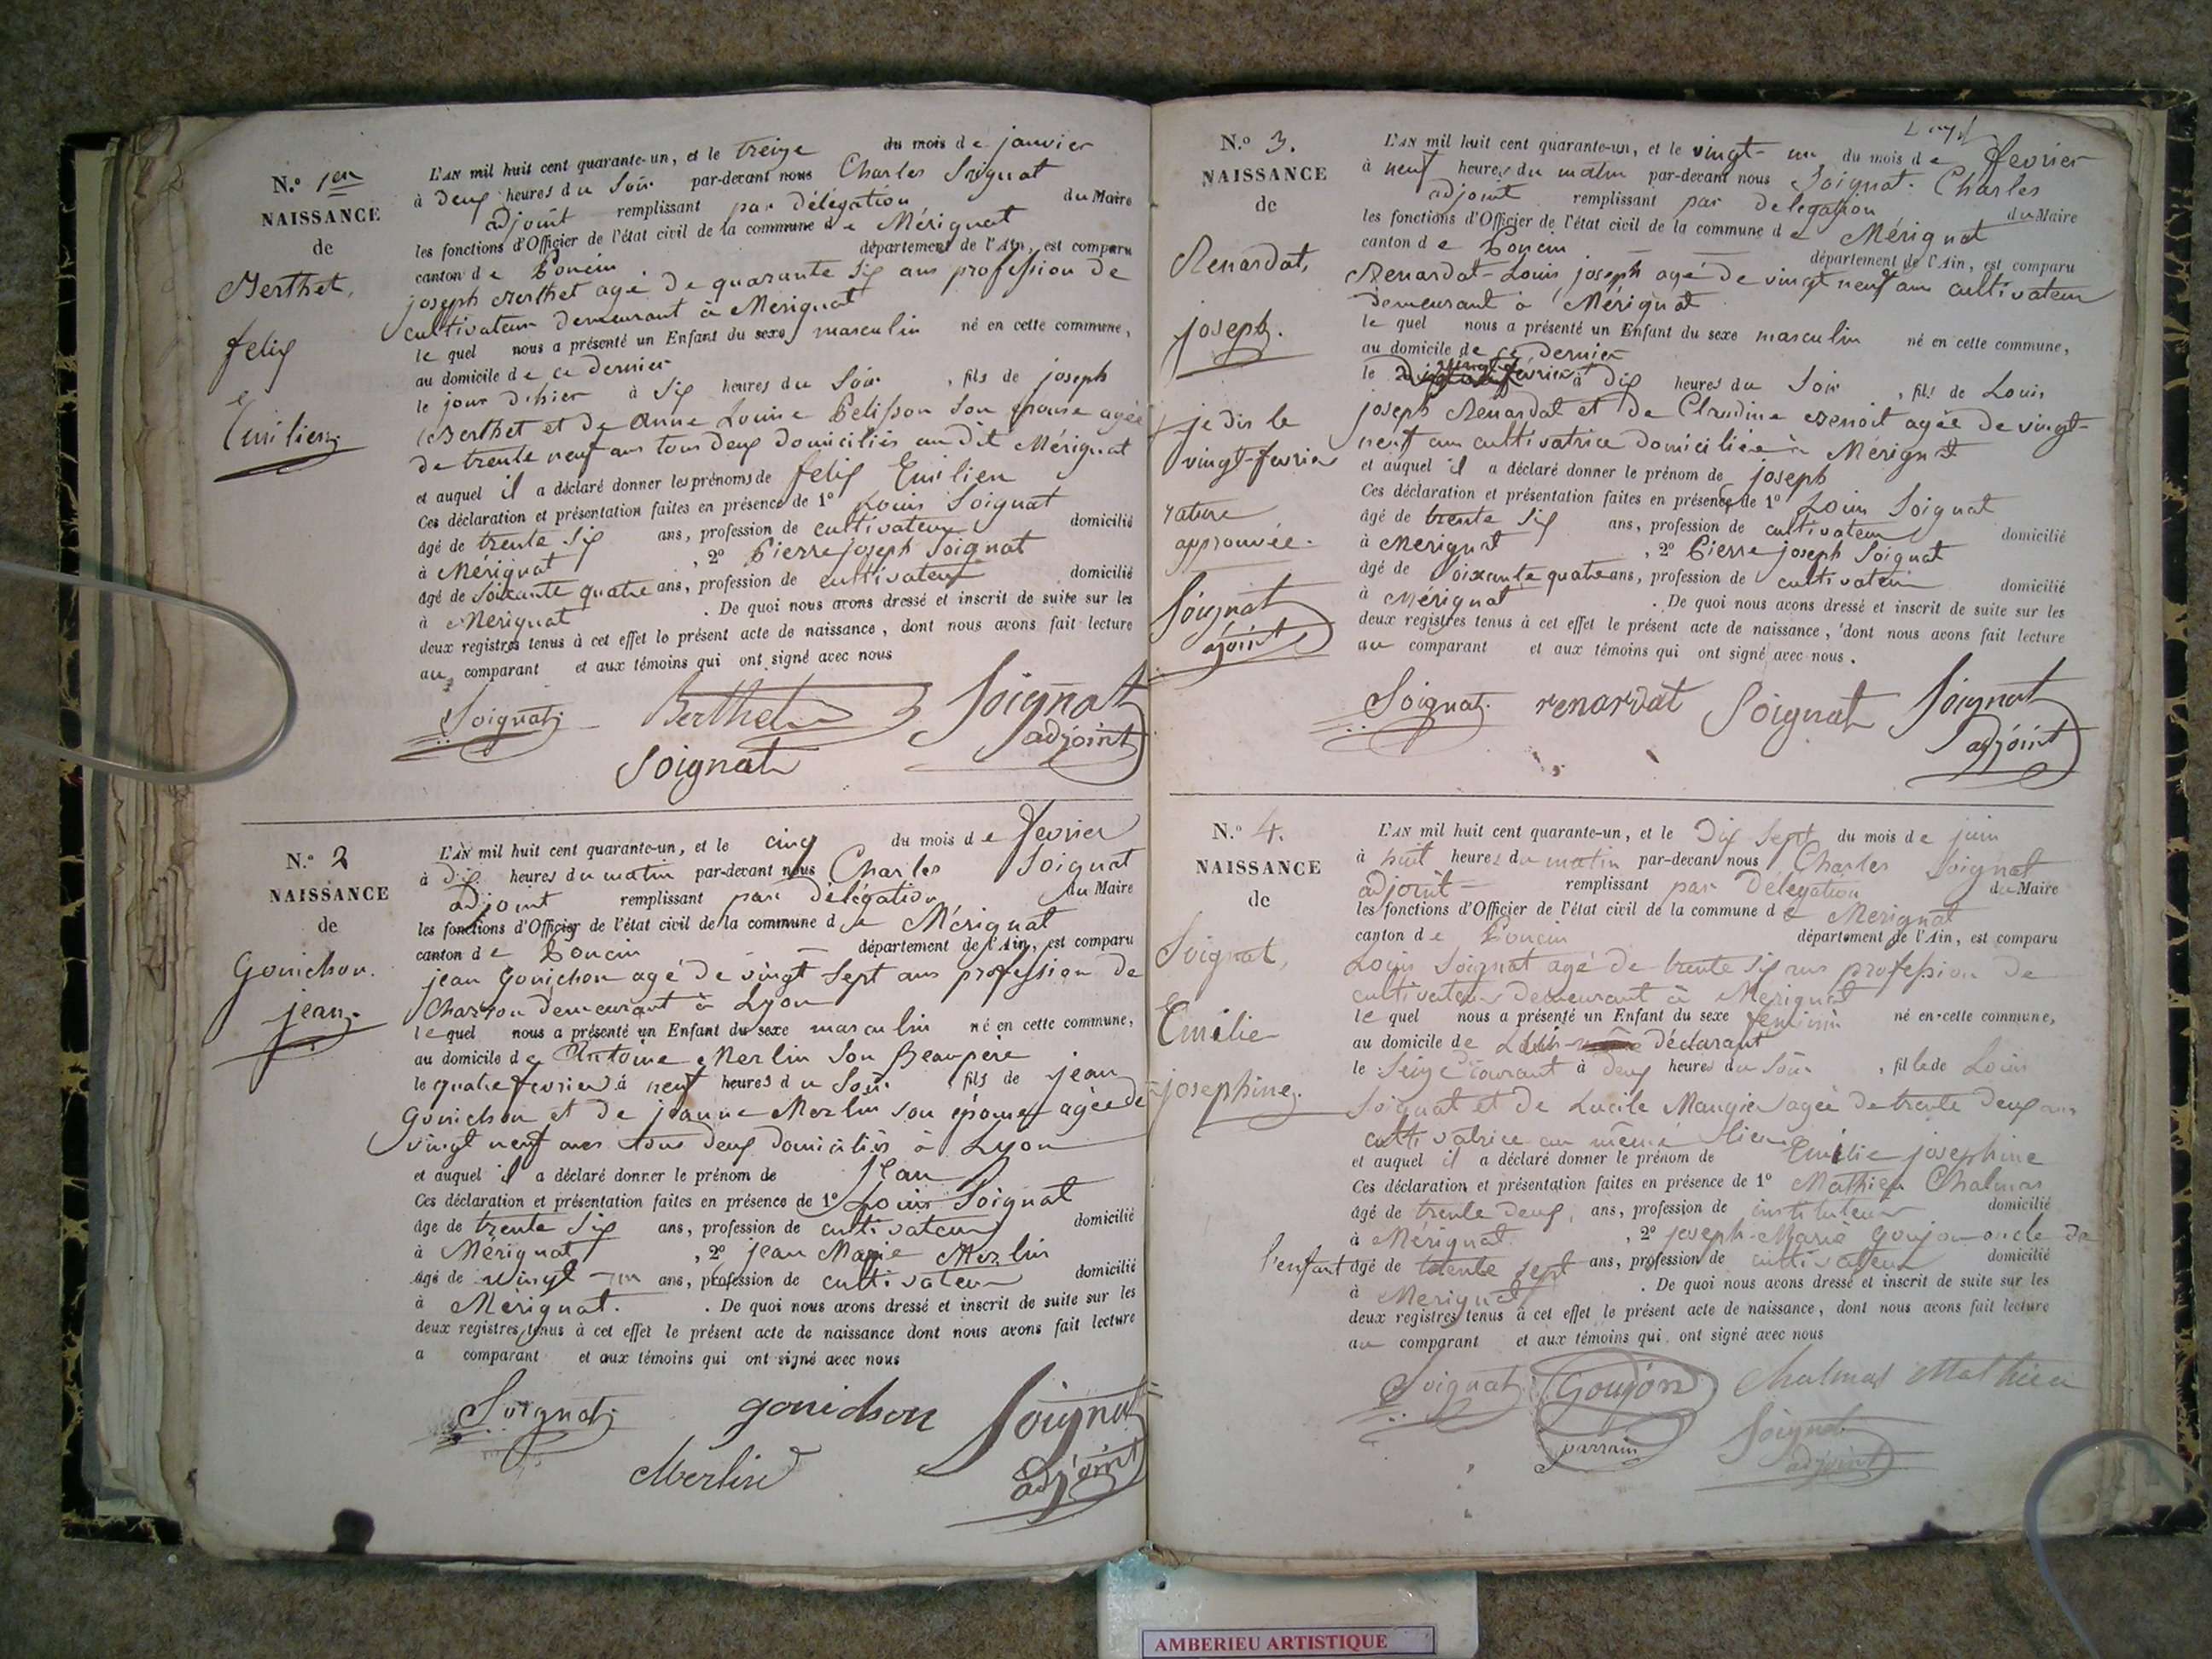 N.º 1er
NAISSANCE
de
Berthet,
felix
Emilien.
L'AN mil huit cent quarante-un, et le treize du mois de janvier
à Deux heures du Soir par-devant nous Charles Soignat
adjoint remplissant par Délégation du Maire
les fonctions d'Officier de l'état civil de la commune de Mérignat
canton de Poncin département de l'Ain, est comparu
joseph Berthet agé de quarante Six ans profession de
cultivateur demeurant à Merignat
le quel nous a présenté un Enfant du sexe masculin né en cette commune,
au domicile de ce dernier
le jour d'hier à Six heures du Soir, fils de joseph
Berthet et de Anne Louise Pelisson Son épouse agée
de trente neuf ans tous deux domiciliés au dit Mérignat
et auquel il a déclaré donner les prénoms de felix Emilien
Ces déclaration et présentation faites en présence de 1º Louis Soignat
âgé de trente Six ans, profession de cultivateur domicilié
à Mérignat, 2º Pierre joseph Soignat
âgé de Soixante quatre ans, profession de cultivateur domicilié
à Merignat. De quoi nous avons dressé et inscrit de suite sur les
deux registres tenus à cet effet le présent acte de naissance, dont nous avons fait lecture
au comparant et aux témoins qui ont signé avec nous
Soignat Berthet Soignat
adjoint
Soignat
N.º 2
NAISSANCE
de
Gonichon.
jean.
L'AN mil huit cent quarante-un, et le cinq du mois de fevrier
à Dix heures du matin par-devant nous Charles Soignat
adjoint remplissant par délégation du Maire
les fonctions d'Officier de l'état civil de la commune de Mérignat
canton de Poncin département de l'Ain, est comparu
jean Gonichon agé de vingt Sept ans profession de
Charron demeurant à Lyon
le quel nous a présenté un Enfant du sexe masculin né en cette commune,
au domicile de Antoine Merlin Son Beaupère
le quatre fevrier à neuf heures du Soir fils de jean
Gonichon et de jeanne Merlin son épouse agée de
vingt neuf ans tous deux domiciliés à Lyon
et auquel il a déclaré donner le prénom de jean
Ces déclaration et présentation faites en présence de 1º Louis Soignat
âge de trente Six ans, profession de cultivateur domicilié
à Mérignat, 2º jean Marie Merlin
âgé de vingt-un ans, profession de cultivateur domicilié
à Mérignat. De quoi nous avons dressé et inscrit de suite sur les
deux registres tenus à cet effet le présent acte de naissance dont nous avons fait lecture
a comparant et aux témoins qui ont signé avec nous
Soignat gonichon Soignat
Merlin adjoint
N.º 3.
NAISSANCE
de
Renardat,
joseph.
je dis le
vingt-fevrier
rature
approuvée.
Soignat
adjoint
L'AN mil huit cent quarante-un, et le vingt-un du mois de fevrier
à neuf heures du matin par-devant nous Soignat. Charles
adjoint remplissant par délégation du Maire
les fonctions d'Officier de l'état civil de la commune de Mérignat
canton de Poncin département de l'Ain, est comparu
Renardat-Louis joseph agé de vingt neuf ans cultivateur
demeurant à Mérignat
le quel nous a présenté un Enfant du sexe masculin né en cette commune,
au domicile de ce dernier
le vingt fevrier à dix heures du Soir, fils de Louis
joseph Renardat et de Claudine Benoit agée de vingt-
neuf ans cultivatrice domiciliée à Mérignat
et auquel il a déclaré donner le prénom de joseph
Ces déclaration et présentation faites en présence de 1º Louis Soignat
âgé de trente Six ans, profession de cultivateur domicilié
à Merignat, 2º Pierre joseph Soignat
âgé de Soixante quatre ans, profession de cultivateur domicilié
à Mérignat. De quoi nous avons dressé et inscrit de suite sur les
deux registres tenus à cet effet le présent acte de naissance, dont nous avons fait lecture
au comparant et aux témoins qui ont signé avec nous.
Soignat. renardat Soignat Soignat
adjoint
N.º 4.
NAISSANCE
de
Soignat,
Emilie
josephine.
L'AN mil huit cent quarante-un, et le Dix Sept du mois de juin
à huit heures du matin par-devant nous Charles Soignat
adjoint remplissant par Délégation du Maire
les fonctions d'Officier de l'état civil de la commune de Mérignat
canton de Poncin département de l'Ain, est comparu
Louis Soignat agé de trente Six ans profession de
cultivateur demeurant à Merignat
le quel nous a présenté un Enfant du sexe feminin né en cette commune,
au domicile de déclarant
le Seize courant à deux heures du Soir, fille de Louis
Soignat et de Lucile Mangier agée de trente deux ans
cultivatrice au même lieu
et auquel il a déclaré donner le prénom de Emilie josephine
Ces déclaration et présentation faites en présence de 1º Mathieu Chalmas
âgé de trente deux, ans, profession de instituteur domicilié
à Mérignat, 2º joseph-Marie Goujon oncle de
l'enfant âgé de trente sept ans, profession de cultivateur domicilié
à Merignat. De quoi nous avons dressé et inscrit de suite sur les
deux registres tenus à cet effet le présent acte de naissance, dont nous avons fait lecture
au comparant et aux témoins qui ont signé avec nous
Soignat Goujon Chalmas Mathieu
parrain Soignat
adjoint
AMBERIEU ARTISTIQUE